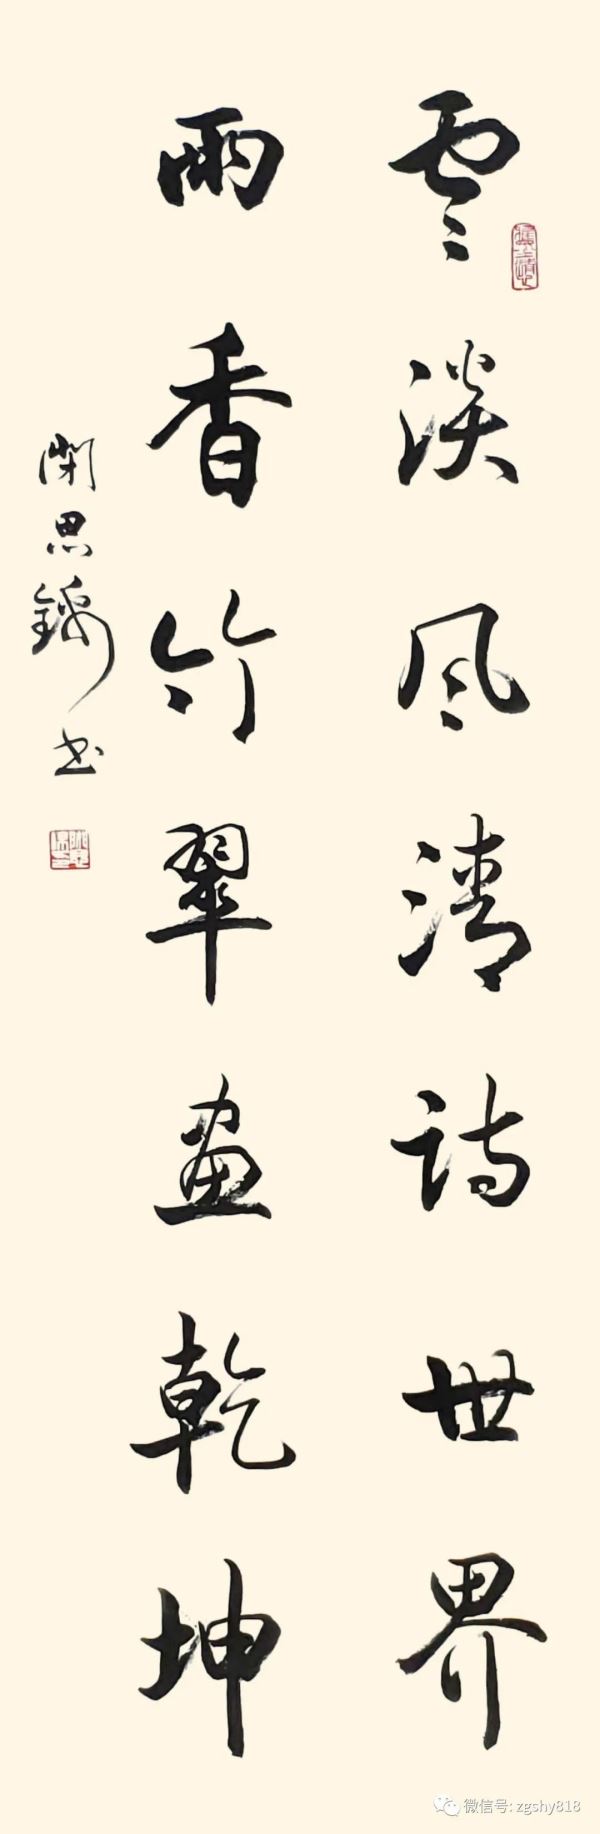 雲淡风清诗世界
雨香竹翠画乾坤
闭思锦书
微信号: zgshy818